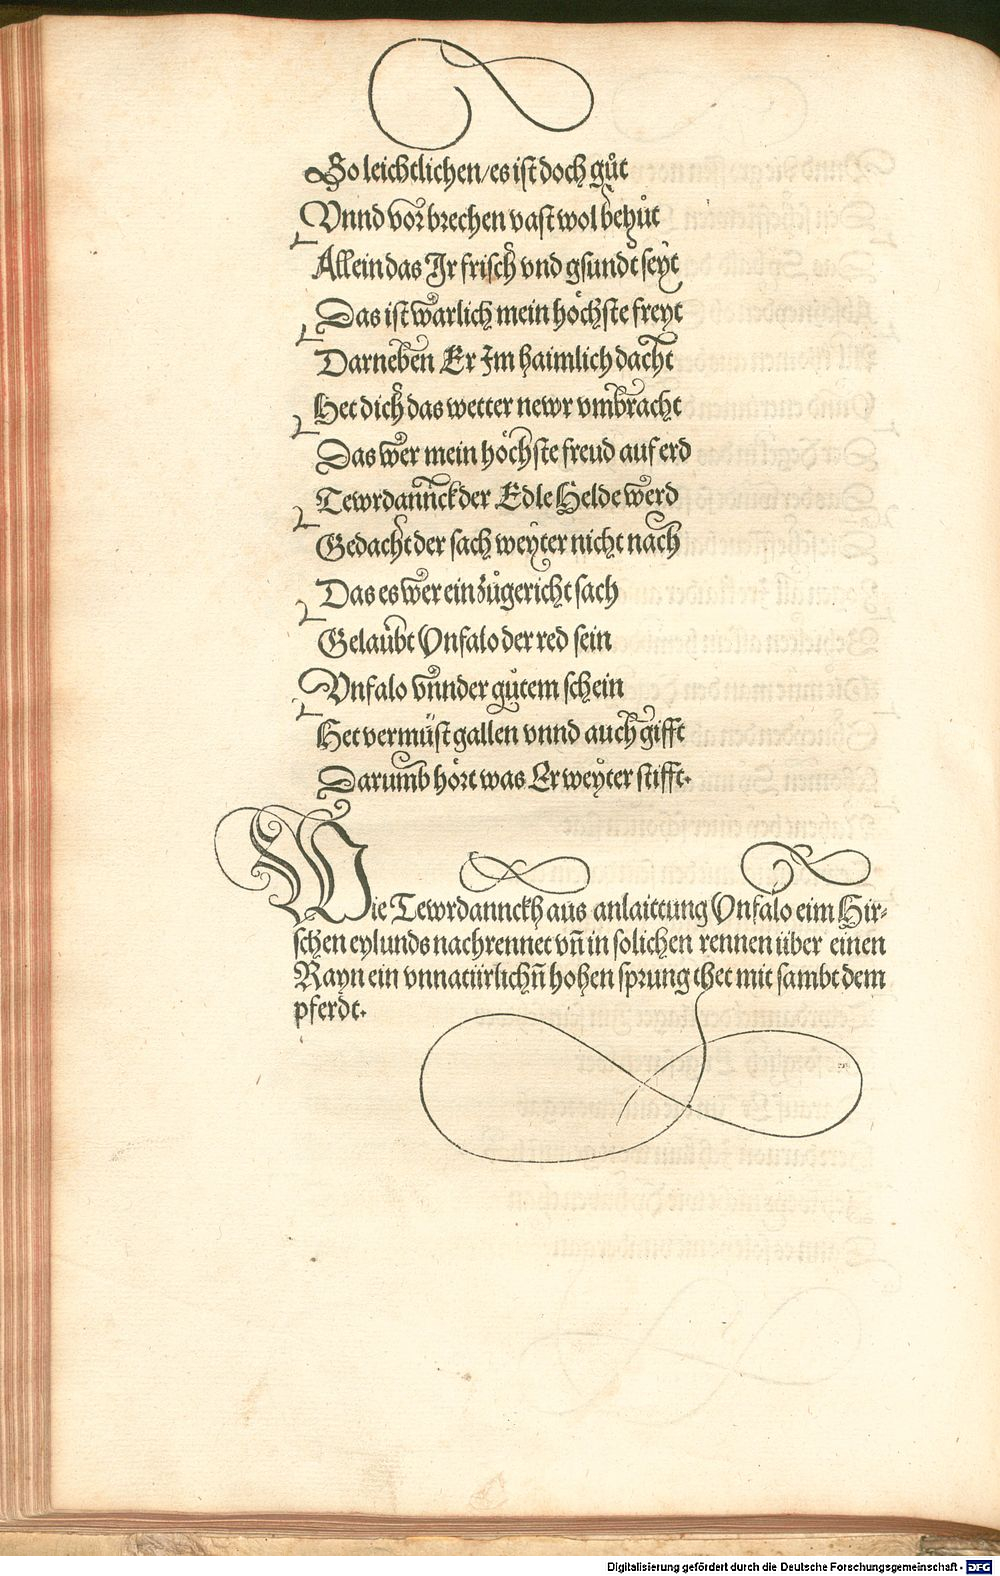 So leichtlichen/es ist doch gůt
Vnnd vor brechen vast wol behůt
Allein das Jr frisch vnd gsundt seyt
Das ist warlich mein höchste freyt
Darneben Er Jm haimlich dacht
Het dich das wetter newr vmbracht
Das wer mein höchste freud auf erd
Tewrdannck der Edle Helde werd
Gedacht der sach weyter nicht nach
Das es wer ein zůgericht sach
Gelaubt Vnfalo der red sein
Vnfalo vnnder gůtem schein
Het vermüst gallen vnnd auch gifft
Darumb hört was Er weyter stifft.
Wie Tewrdannckh aus anlaittung Vnfalo eim Hir-
schen eylunds nachrennet vñ in solichen rennen über einen
Rayn ein vnnatürlichñ hohen sprung thet mit sambt dem
pferdt.
Digitalisierung gefördert durch die Deutsche Forschungsgemeinschaft - DFG